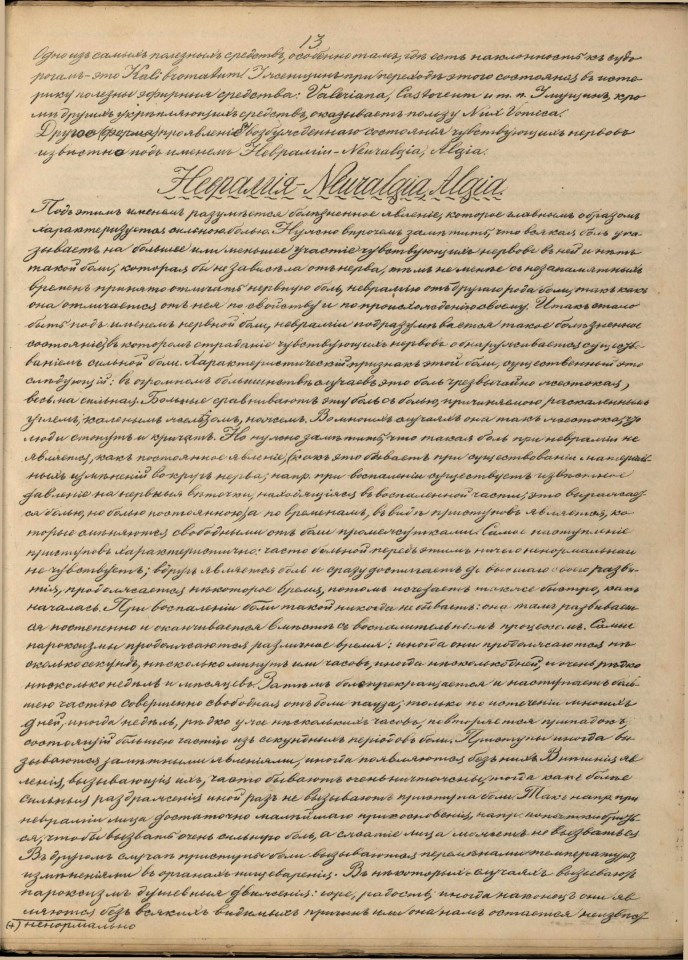 13
Одно изъ самыхъ полезныхъ средствъ, особенно тамъ, гдѣ есть наклонность къ судо-
рогамъ – это Kali bromatum. У женщинъ при переходѣ этого состоянія въ исте-
рику полезны эфирныя средства: Valeriana, Castoreum и т. п. У мущинъ, кро-
мѣ другихъ укрѣпляющихъ средствъ, оказываетъ пользу Nux Vomica.
Другая форма проявленія возбужденнаго состоянія чувствующихъ нервовъ
извѣстна подъ именемъ Невралгіи – Neuralgia, Algia.
Невралгія – Neuralgia, Algia.
Подъ этимъ именемъ разумѣется болѣзненное явленіе, которое главнымъ образомъ
характеризуется сильною болью. Нужно впрочемъ замѣтить, что всякая боль ука-
зываетъ на большее или меньшее участіе чувствующихъ нервовъ въ ней и нѣтъ
такой боли, которая бы не зависѣла отъ нерва, тѣмъ не менѣе съ незапамятныхъ
временъ принято отличать нервную боль, невралгію отъ другаго рода боли, такъ какъ
она отличается отъ нея по свойству и по происхожденію своему. И такъ стало
быть подъ именемъ нервной боли, невралгіи подразумѣвается такое болѣзненное
состояніе, въ которомъ страданіе чувствующихъ нервовъ обнаруживается существо-
ваніемъ сильной боли. Характеристическій признакъ этой боли, существенный это
слѣдующій: въ огромномъ большинствѣ случаевъ это боль чрезвычайно жестокая,
весьма сильная. Больные сравниваютъ эту боль съ болью, причиняемою раскаленнымъ
углемъ, каленымъ желѣзомъ, ножемъ. Во многихъ случаяхъ она такъ жестока, что
люди стонутъ и кричатъ. Но нужно замѣтить, что такая боль при невралгіи не
является, какъ постоянное явленіе, (какъ это бываетъ при существованіи матеріаль-
ныхъ измѣненій вокругъ нерва; напр. при воспаленіи существуетъ извѣстное
давленіе на нервныя вѣточки, находящіяся въ воспаленной части; это выражает-
ся болью, но болью постоянною) а по временамъ, въ видѣ приступовъ является, ко-
торые смѣняются свободными отъ боли промежутками. Самое наступленіе
приступовъ характеристично: часто больной передъ этимъ ничего ненормальнаго
не чувствуетъ; вдругъ является боль и сразу достигаетъ до высшаго своего разви-
тія, продолжается нѣкоторое время, потомъ исчезаетъ также быстро, какъ
началась. При воспаленіи боли такой никогда не бываетъ: она тамъ развивает-
ся постепенно и оканчивается вмѣстѣ съ воспалительнымъ процессомъ. Самые
пароксизмы продолжаются различное время: иногда они продолжаются нѣ-
сколько секундъ, нѣсколько минутъ или часовъ, иногда нѣсколько дней и очень рѣдко
нѣсколько недѣль и мѣсяцевъ. Затѣмъ боль прекращается и наступаетъ боль-
шею частію совершенно свободная отъ боли пауза; только по истеченіи многихъ
дней, иногда недѣль, рѣдко уже нѣсколькихъ часовъ, повторяется припадокъ,
состоящій большею частію изъ секундныхъ періодовъ боли. Приступы иногда вы-
зываются замѣтными явленіями, иногда появляются безъ нихъ. Внѣшнія яв-
ленія, вызывающія ихъ, часто бываютъ очень ничтожны, тогда какъ болѣе
сильныя раздраженія иной разъ не вызываютъ приступа боли. Такъ напр. при
невралгіи лица достаточно малѣйшаго прикосновенія, напр.
ся, чтобы вызвать очень сильную боль, а сжатіе лица можетъ не вызвать ея.
Въ другомъ случаѣ приступы боли вызываются перемѣнами температуры,
измѣненіями въ органахъ пищеваренія. Въ нѣкоторыхъ случаяхъ вызываютъ
пароксизмъ душевныя движенія: горе, радость, иногда наконецъ они яв-
ляются безъ всякихъ видимыхъ причинъ или она намъ остается неизвѣст-
(+) ненормально